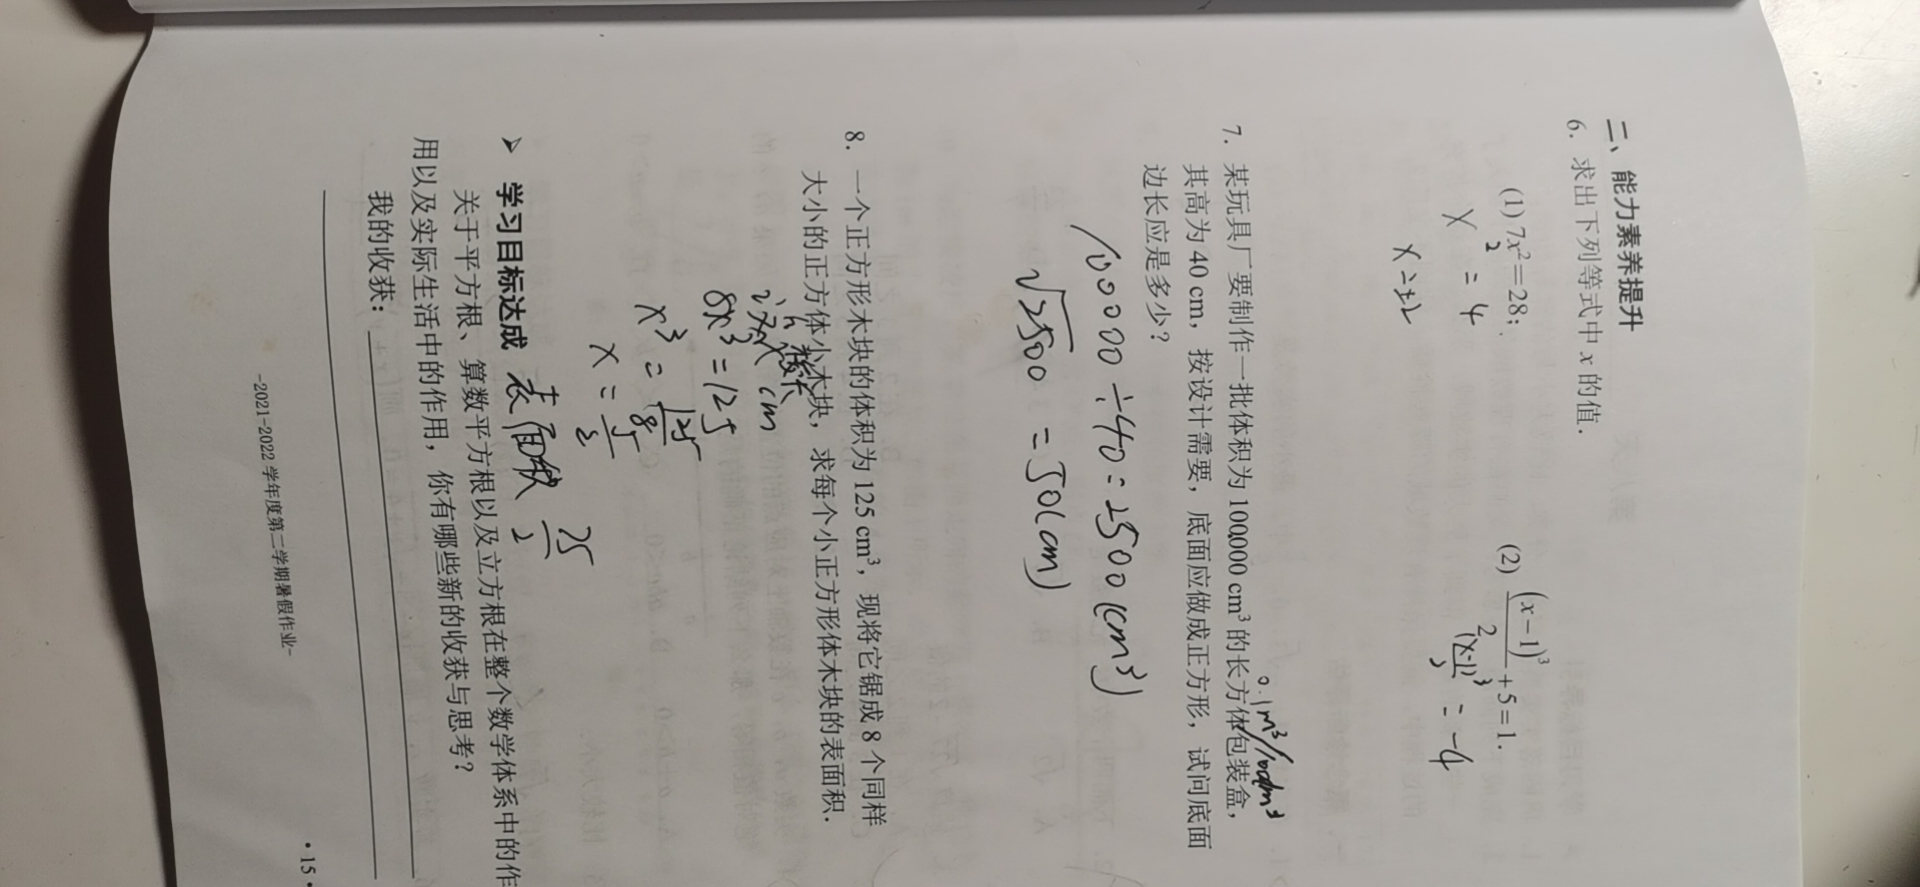 二、能力素养提升
6. 求出下列等式中 x 的值.
(1) 7x²=28; (2) (x-1)³/2+5=1.
x²=4 (x-1)³/2=-4
x=±2
0.1m³/100dm³
7. 某玩具厂要制作一批体积为 100000 cm³ 的长方体包装盒,
其高为 40 cm, 按设计需要, 底面应做成正方形, 试问底面
边长应是多少?
100000÷40=2500(cm³)
√2500=50(cm)
8. 一个正方形木块的体积为 125 cm³, 现将它锯成 8 个同样
大小的正方体小木块, 求每个小正方形体木块的表面积.
cm
8x³=125
x³=125/8
x=5/2
表面积 75/2
➢ 学习目标达成
关于平方根、算数平方根以及立方根在整个数学体系中的作
用以及实际生活中的作用, 你有哪些新的收获与思考?
我的收获:
-2021-2022 学年度第二学期暑假作业-
·15·